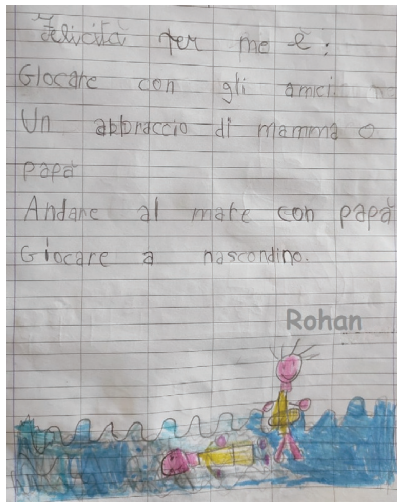 Felicità per me è:
Giocare con gli amici
Un abbraccio di mamma o
papà
Andare al mare con papà
Giocare a nascondino.
Rohan